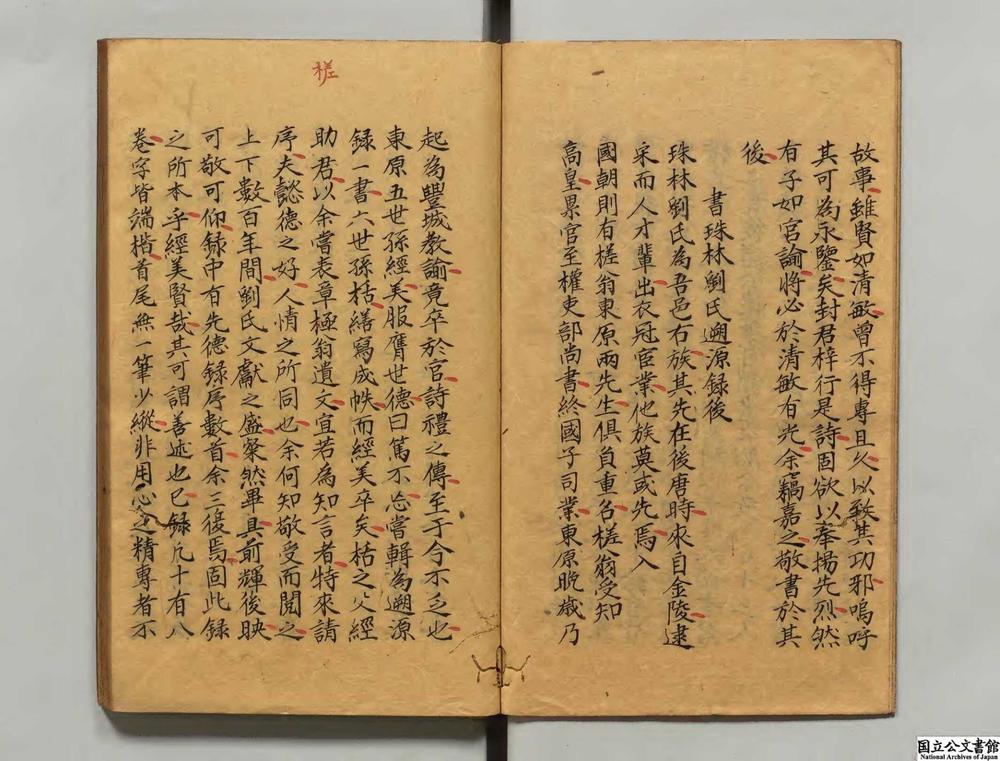 故事雖賢如清敏曾不得專且久以致其功邪嗚呼
其可為永鑒矣封君梓行是詩固欲以奉揚先烈然
有子如官諭將必於清敏有光余竊嘉之敬書於其
後
書珠林劉氏遡源録後
珠林劉氏為吾邑右族其先在後唐時來自金陵逮
宋而人才輩出衣冠宦業他族莫或先焉入
國朝則有槎翁東原兩先生俱負重名槎翁受知
高皇累官至權吏部尚書終國子司業東原晚歲乃
槎
起為豐城教諭竟卒於官詩禮之傳至于今不乏也
東原五世孫經美服膺世德曰篤不忘嘗輯為遡源
録一書六世孫栝繕寫成帙而經美卒矣栝之父經
助君以余嘗表章極翁遺文宜若為知言者特來請
序夫懿德之好人情之所同也余何知敬受而閱之
上下數百年間劉氏文獻之盛粲然畢具前輝後映
可敬可仰録中有先德録序數首余三復焉固此録
之所本乎經美賢哉其可謂善述也已録凡十有八
卷字皆端楷首尾無一筆少縱非用心之精專者不
国立公文書館
National Archives of Japan